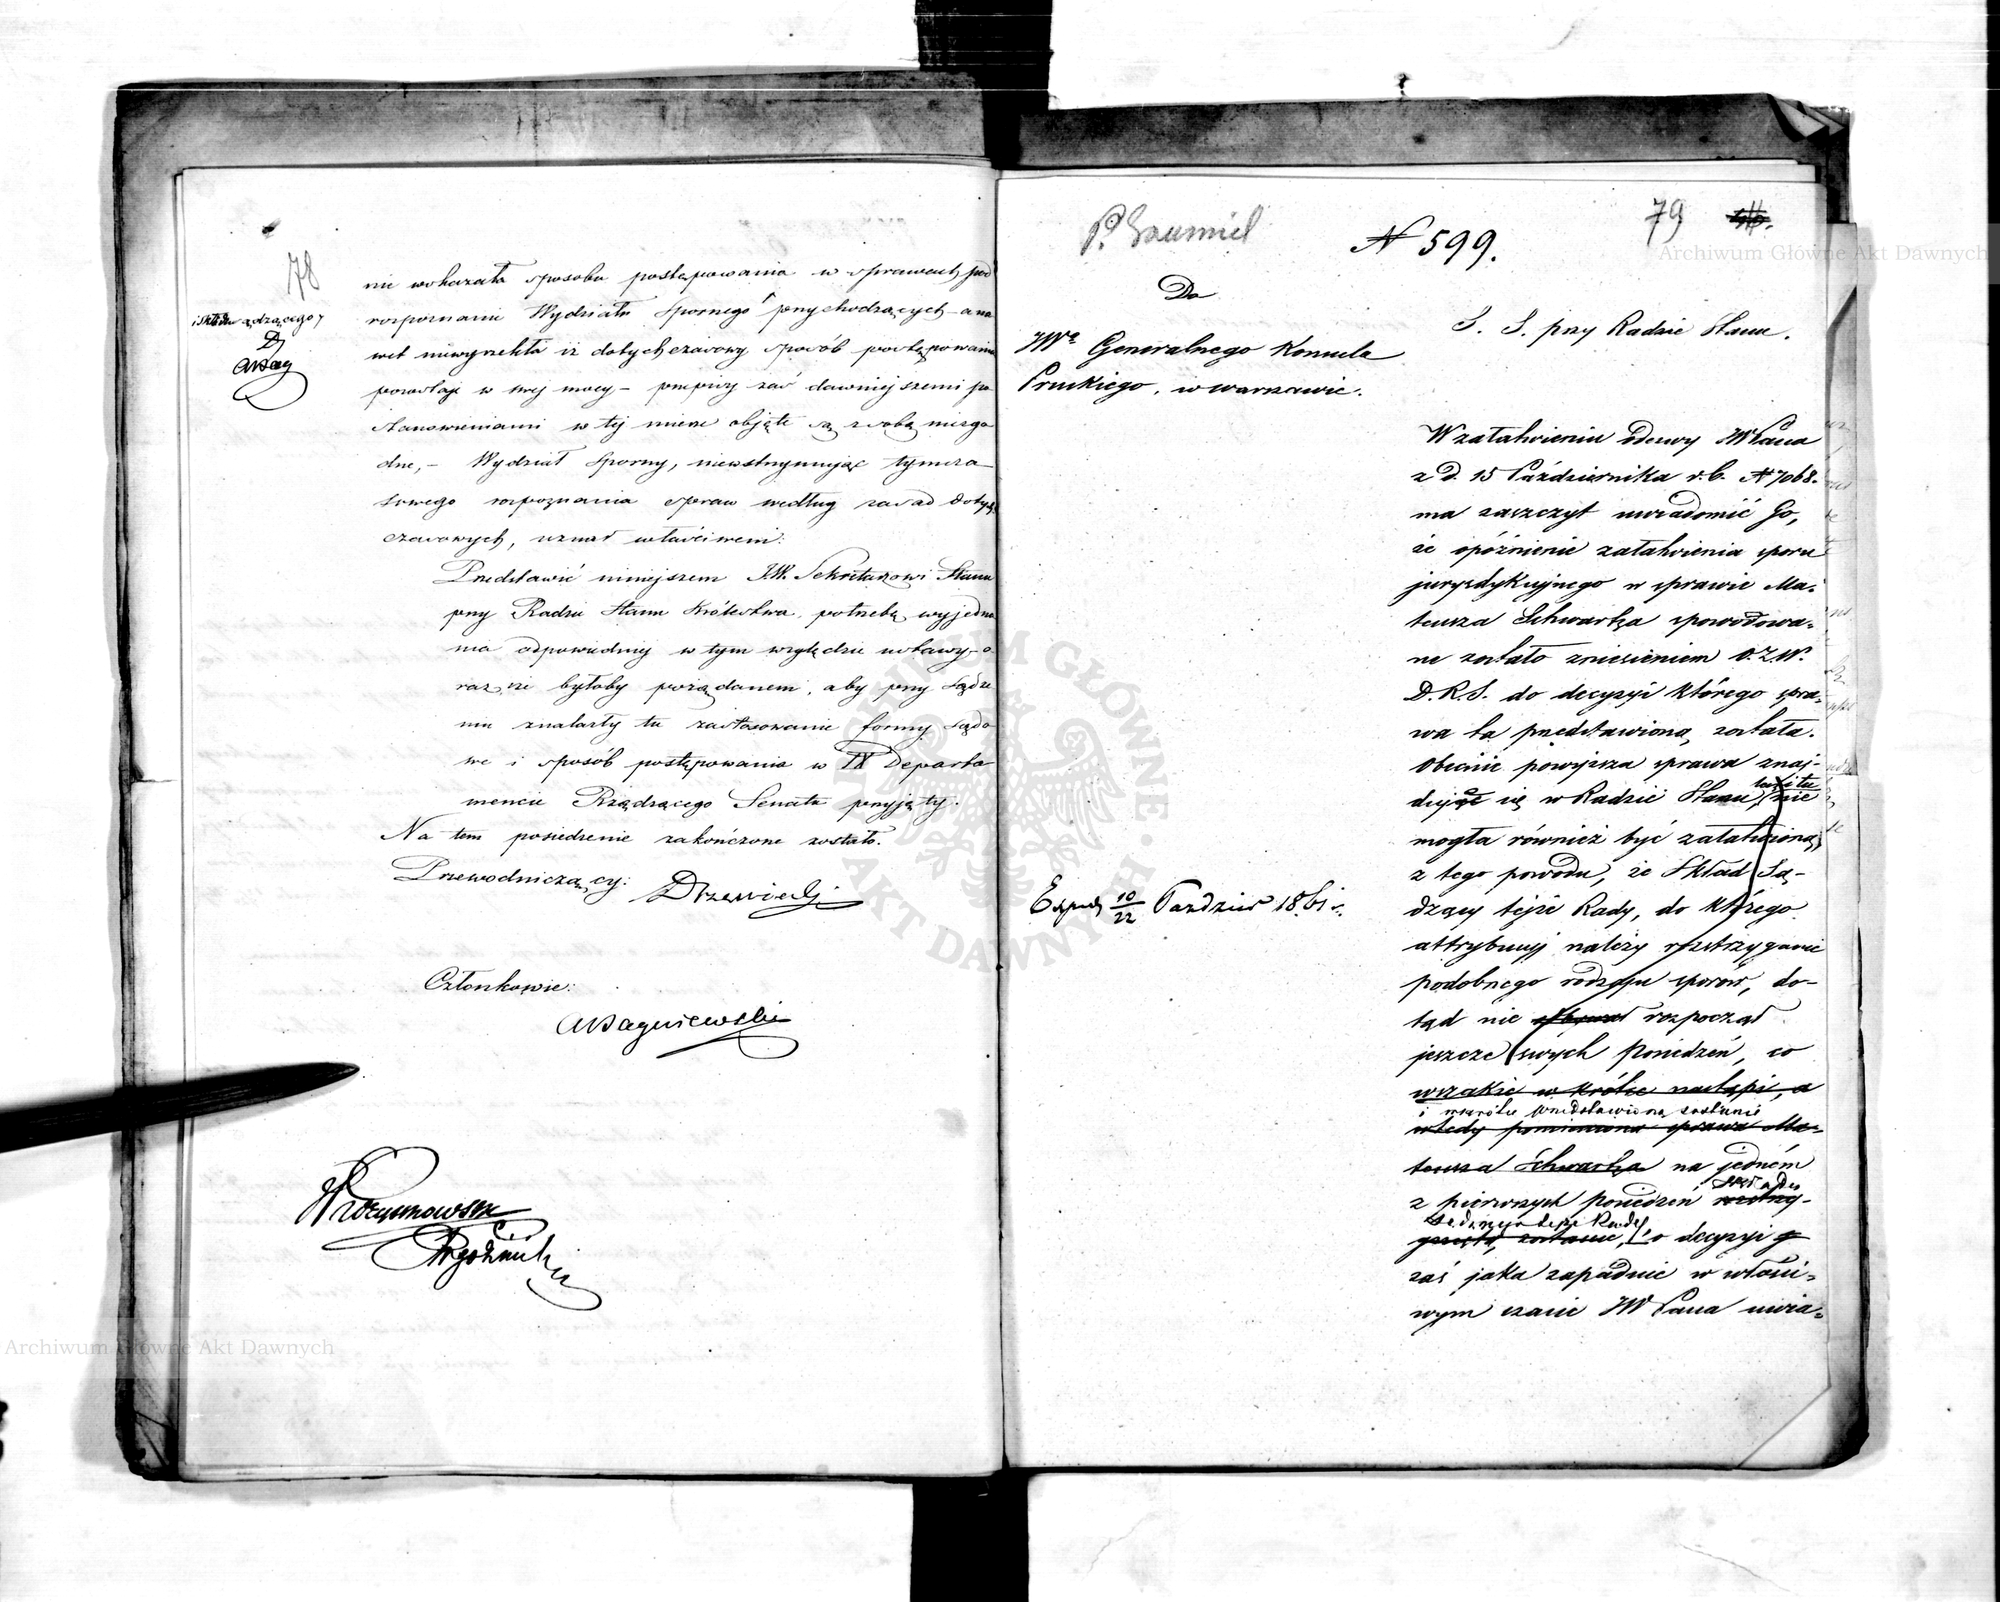 78
nie wskazała sposobu postępowania w sprawach pod
i Składu Sądzącego
rozpoznanie Wydziału Spornego przychodzących – a na
wet niewyrzekła iż dotychczasowy sposób postępowania
pozostaje w swej mocy – przepisy zaś dawniejszemi po
stanowieniami w tej mierze objęte są z sobą niezgo
dne, – Wydział Sporny, niewstrzymując tymcza
sowego rozpoznania spraw według zasad doty
czasowych, uznał właściwem:
Przedstawić niniejszem J.W. Sekretarzowi Stanu
przy Radzie Stanu Królestwa potrzebę wyjedna
nia odpowiedniej w tym względzie ustawy – o
raz, że byłoby pożądanem, aby przy Sądze
niu znalazły tu zastosowanie formy Sądo
we i sposób postępowania w IX Departa
mencie Rządzącego Senatu przyjęty.
Na tem posiedzenie zakończone zostało.
Przewodniczący: Drzewiecki
Członkowie:
79
N 599.
Do
JWo Generalnego Konsula
Pruskiego, w Warszawie.
S. S. przy Radzie Stanu.
W załatwieniu odezwy JWPana
z d. 15 Października r.b. N 7068.
ma zaszczyt uwiadomić Go,
że opóźnienie załatwienia sporu
juryzdykcyjnego w sprawie Ma-
teusza Schwartza spowodowa-
ne zostało zniesieniem O.Z.W.
D.R.S. do decyzyi którego spra-
wa ta przedstawioną została.
Obecnie powyższa sprawa znaj-
duje się w Radzie Stanu, nie
mogła również być załatwioną,
z tego powodu, że Skład Są-
dzący tejże Rady, do którego
attrybucyj należy rozstrzyganie
podobnego rodzaju sporów, do-
tąd nie rozpoczął
jeszcze swych posiedzeń, co
wszakże w krótce nastąpi, a
i wkrótce przedstawioną zostanie
wtedy pomieniona sprawa Ma-
teusza Schwartza na jedném
z pierwszych posiedzeń rozstrzy-
Składu
Sądzącego tejże Rady
gniętą zostanie, o decyzyi
zaś jaka zapadnie w właści-
wym czasie JWPana uwia-
Exped 10/22 Paździer 1861 r.
Archiwum Główne Akt Dawnych
Archiwum Główne Akt Dawnych
ARCHIWUM GŁÓWNE AKT DAWNYCH